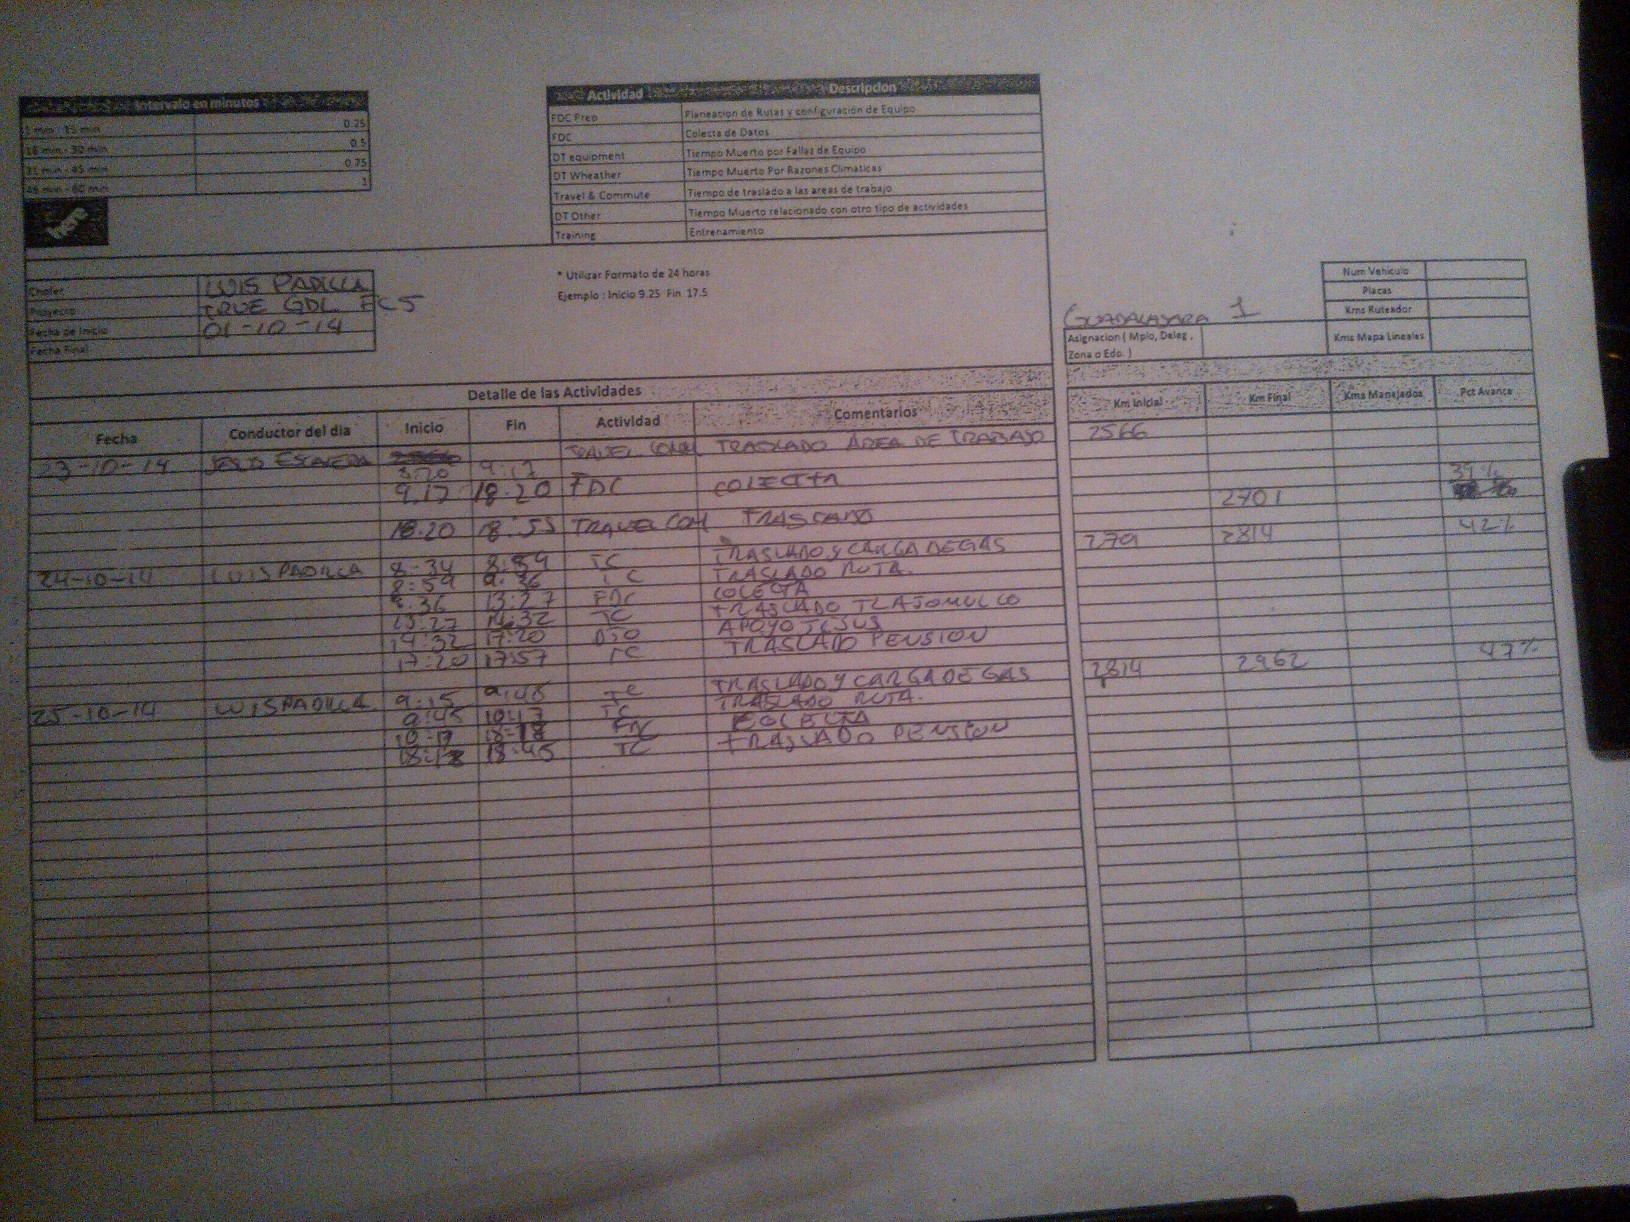 Intervalo en minutos
1 min - 15 min 0.25
16 min - 30 min 0.5
31 min - 45 min 0.75
46 min - 60 min 1
Actividad Descripcion
FDC Prep Planeacion de Rutas y configuración de Equipo
FDC Colecta de Datos
DT equipment Tiempo Muerto por Fallas de Equipo
DT Wheather Tiempo Muerto Por Razones Climaticas
Travel & Commute Tiempo de traslado a las areas de trabajo
DT Other Tiempo Muerto relacionado con otro tipo de actividades
Training Entrenamiento
Chofer LUIS PADILLA
Proyecto TRUE GDL FC5
Fecha de Inicio 01-10-14
Fecha Final
* Utilizar Formato de 24 horas
Ejemplo : Inicio 9.25 Fin 17.5
Num Vehiculo
Placas
Kms Ruteador
Kms Mapa Lineales
GUADALAJARA 1
Asignacion ( Mpio, Deleg ,
Zona o Edo. )
Detalle de las Actividades
Fecha Conductor del dia Inicio Fin Actividad Comentarios Km Inicial Km Final Kms Manejados Pct Avance
23-10-14 9:17 TRAVEL COMM TRASLADO ÁREA DE TRABAJO 2566
9:17 18:20 FDC COLECTA 2701 39%
18:20 18:55 TRAVEL COM TRASLADO
24-10-14 LUIS PADILLA 8:34 8:59 TC TRASLADO Y CARGA DE GAS 2814 42%
8:59 9:36 TC TRASLADO RUTA.
9:36 13:27 FDC COLECTA
13:27 14:32 TC TRASLADO TLAJOMULCO
14:32 17:20 DTO APOYO JESUS
17:20 17:57 TC TRASLADO PENSION
25-10-14 LUIS PADILLA 9:15 9:45 TC TRASLADO Y CARGA DE GAS 2814 2962 47%
9:45 10:17 TC TRASLADO RUTA.
10:17 18:18 FDC COLECTA
18:18 18:45 TC TRASLADO PENSION